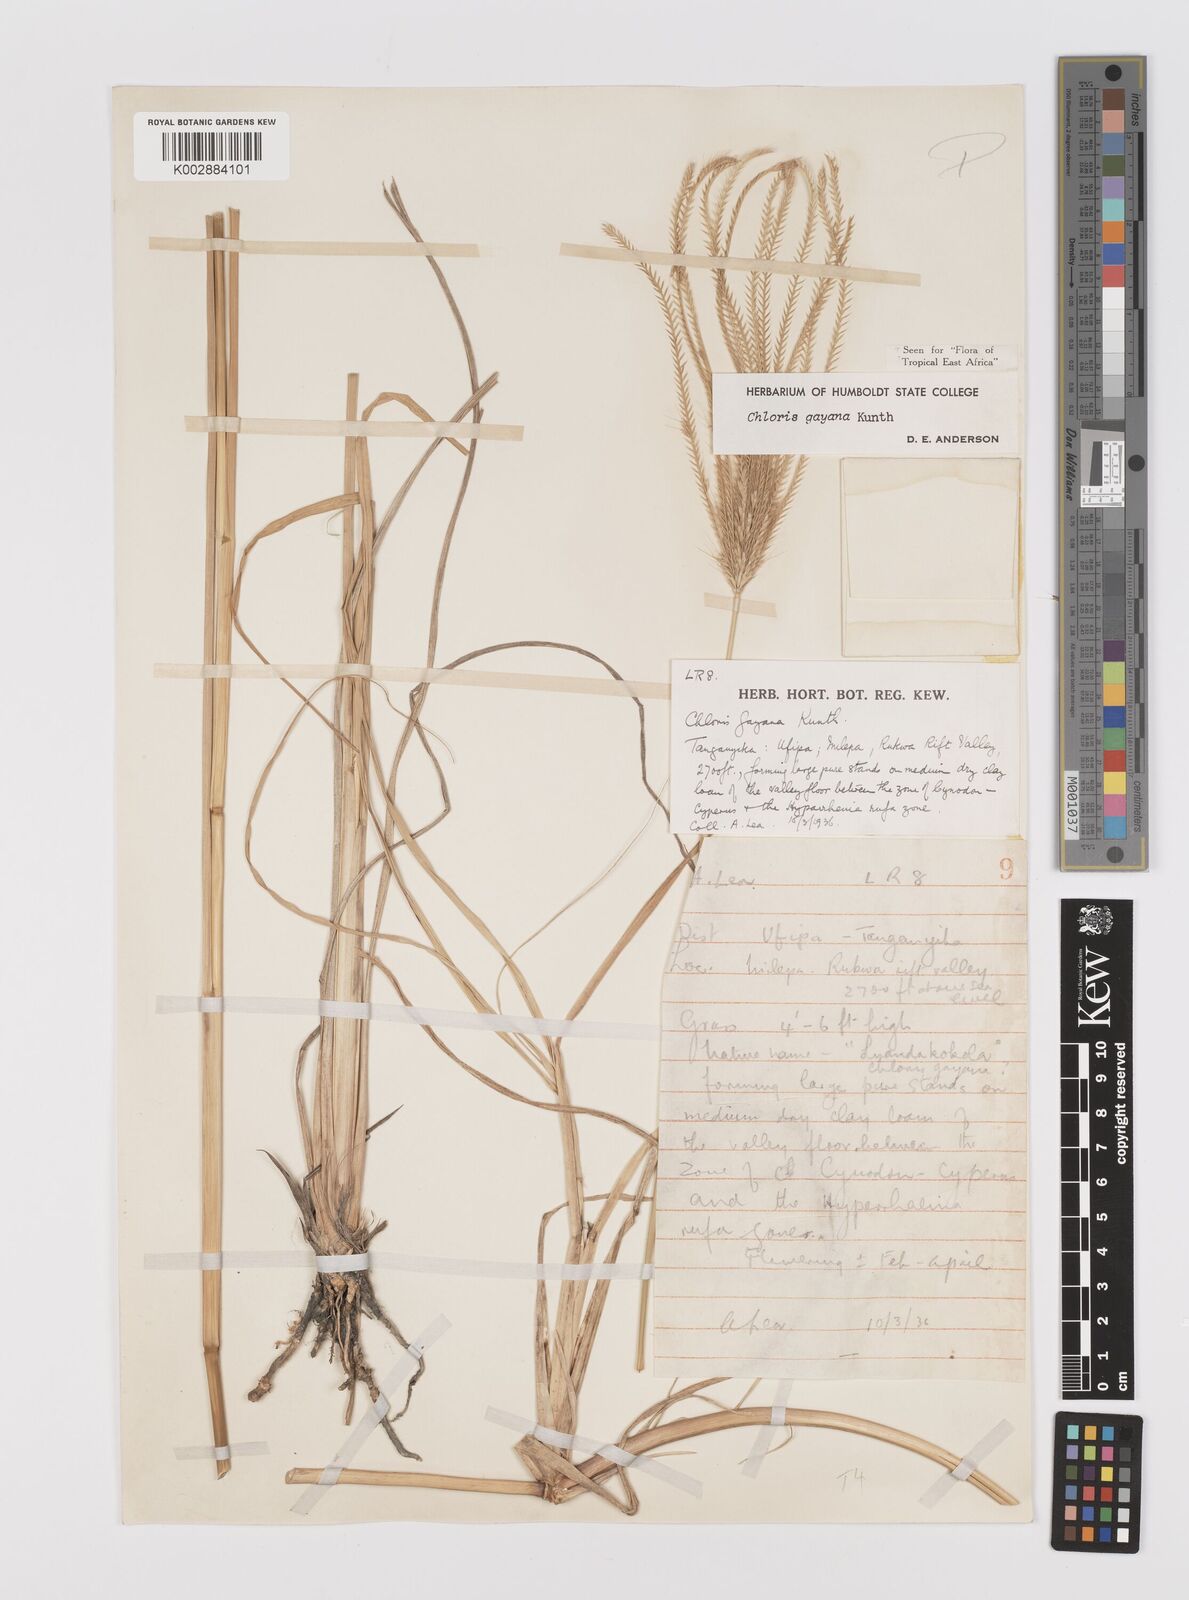 ROYAL BOTANIC GARDENS KEW
K002884101
Seen for "Flora of
Tropical East Africa"
HERBARIUM OF HUMBOLDT STATE COLLEGE
Chloris gayana Kunth
D. E. ANDERSON
LR8.
HERB. HORT. BOT. REG. KEW.
Chloris gayana Kunth.
Tanganyika: Ufipa; Milepa, Rukwa Rift Valley,
2700ft., forming large pure stands on medium dry clay
loam of the valley floor between the zone of Cynodon -
Cyperus & the Hyparrhenia rufa zone.
Coll. A. Lea. 10/3/1936.
9
A. Lea. L R 8
Dist Ufipa - Tanganyika
Loc. Milepa. Rukwa rift valley
2700 ft above sea
level
Grass 4' - 6 ft high
Native name - "Lyandakokola"
Chloris gayana!
forming large pure stands on
medium dry clay loam of
the valley floor between the
zone of Cynodon - Cyperus
and the Hyperrhenia
rufa zones.
Flowering ± Feb - April
A Lea 10/3/36
T4
inches
centimeters
Density
Don Williams
M001037
Royal Botanic Gardens
Kew
copyright reserved
0 1 2 3 4 5 6 7 8 9 10
cm